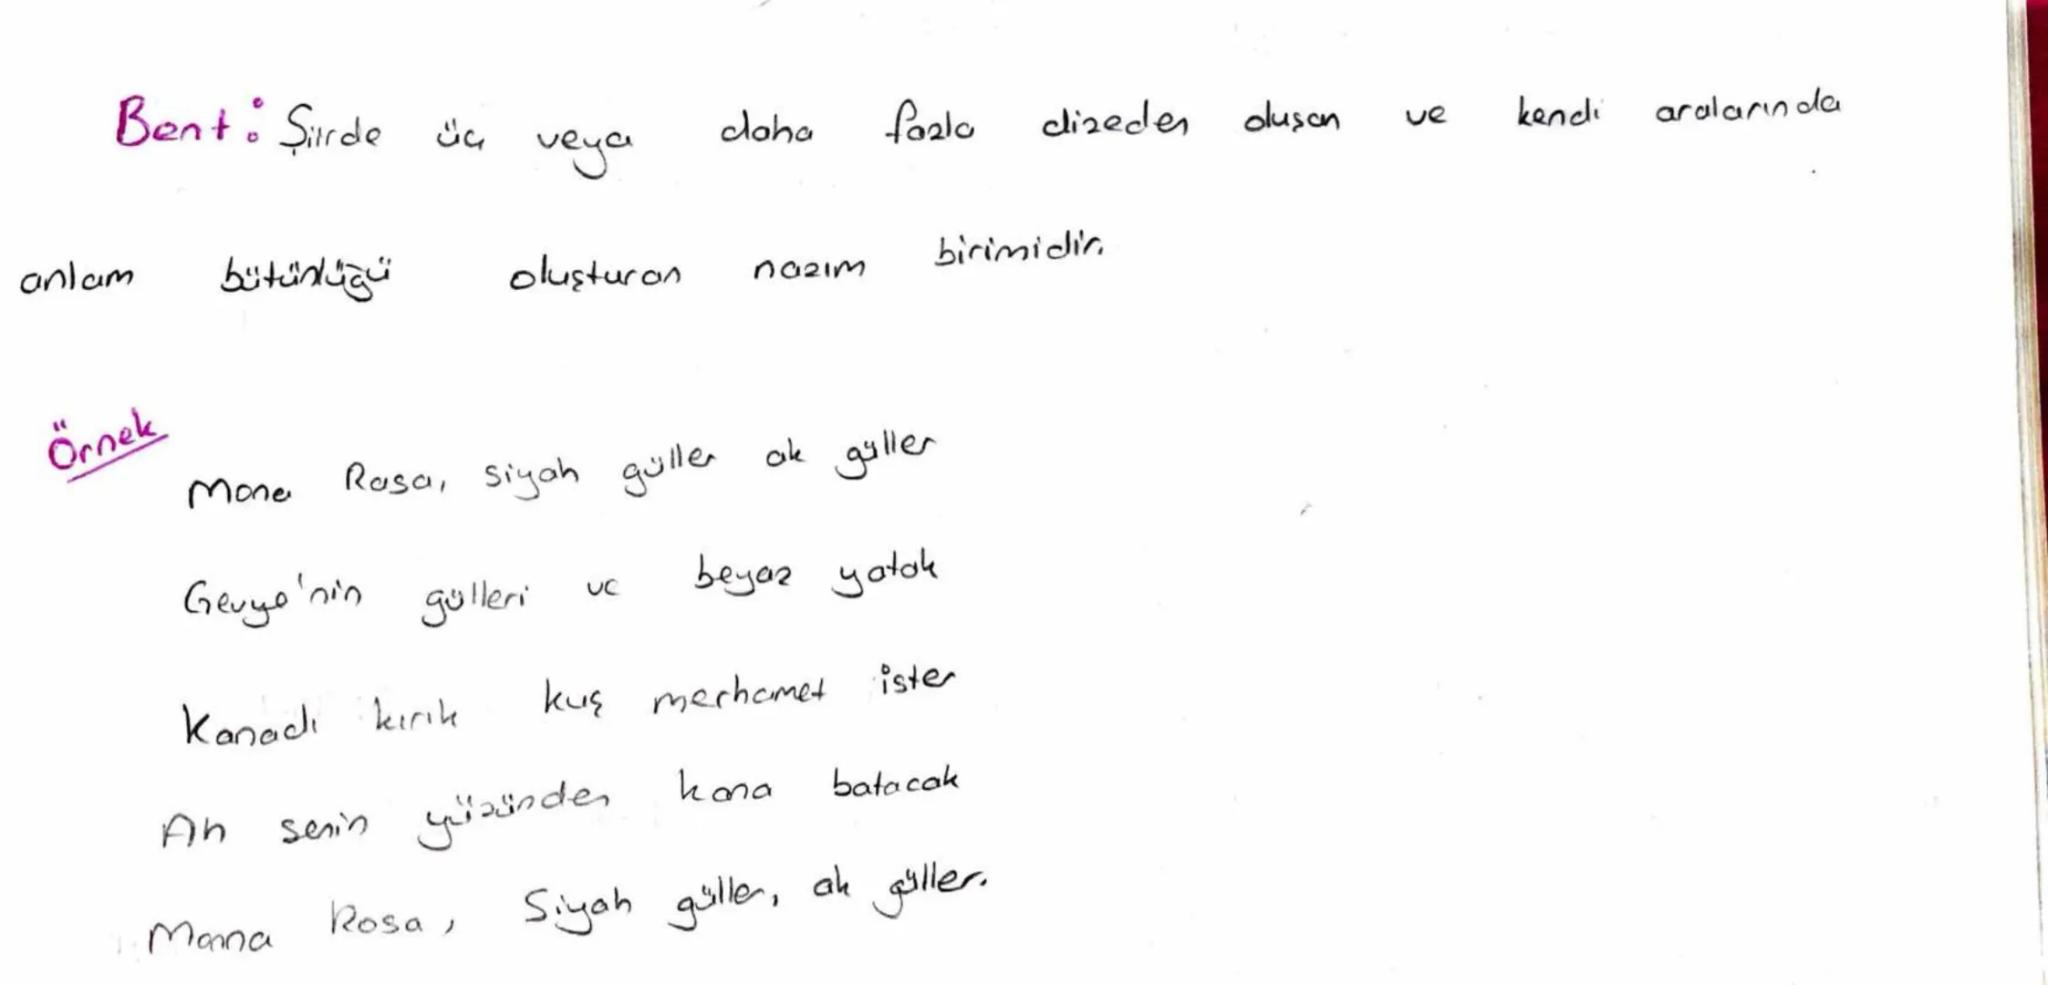 Bent: Şiirde üç veya daha fazla dizeden oluşan ve kendi aralarında
anlam bütünlüğü oluşturan nazım birimidir.
Örnek
Mona Rosa, siyah güller ak güller
Geyve'nin gülleri ve beyaz yatak
Kanadı kırık kuş merhamet ister
Ah senin yüzünden kana batacak
Monna Rosa, Siyah güller, ak güller.